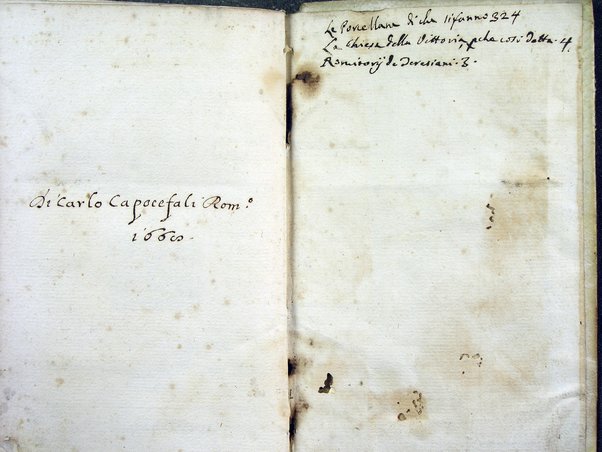 Di Carlo Capocefali Rom.º
1660.
Le Porcellane di che si fanno 324
La Chiesa della Vittoria, pche così detta. 4.
Romitorij de Teresiani. 3.